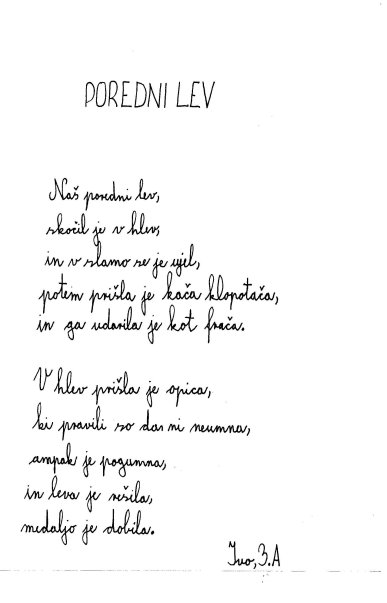 POREDNI LEV
Naš poredni lev,
skočil je v hlev,
in v slamo se je ujel,
potem prišla je kača klopotača,
in ga udarila je kot frača.
V hlev prišla je opica,
ki pravili so da ni neumna,
ampak je pogumna,
in leva je rešila,
medaljo je dobila.
Ivo, 3.A